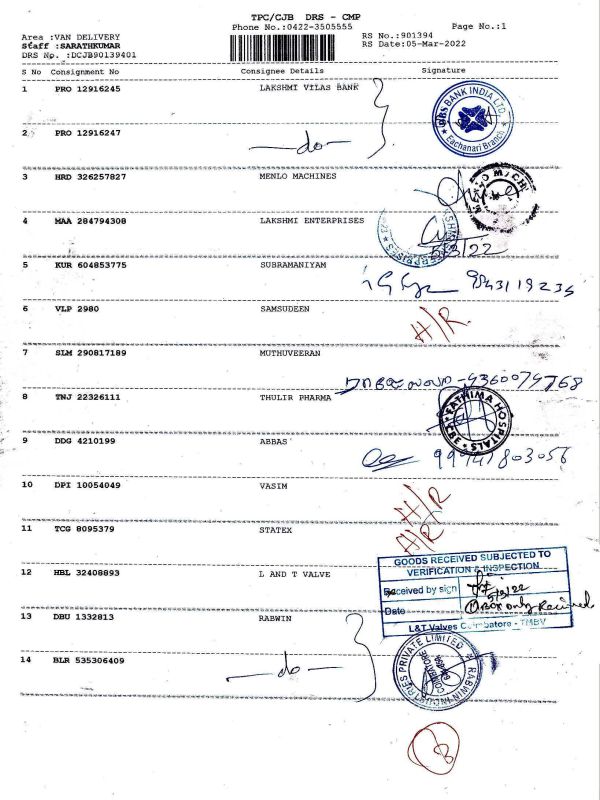 TPC/CJB DRS - CMP
Phone No.:0422-3505555 Page No.:1
Area :VAN DELIVERY RS No.:901394
Staff :SARATHKUMAR RS Date:05-Mar-2022
DRS No. :DCJB90139401
S No Consignment No Consignee Details Signature
1 PRO 12916245 LAKSHMI VILAS BANK
DBS BANK INDIA LTD.
Eachanari Branch
2 PRO 12916247 -do-
3 HRD 326257827 MENLO MACHINES
4 MAA 284794308 LAKSHMI ENTERPRISES
5/3/22
5 KUR 604853775 SUBRAMANIYAM
6 VLP 2980 SAMSUDEEN H/R.
7 SLM 290817189 MUTHUVEERAN
8 TNJ 22326111 THULIR PHARMA
FATHIMA HOSPITALS
9 DDG 4210199 ABBAS
10 DPI 10054049 VASIM H/R
11 TCG 8095379 STATEX H/R
GOODS RECEIVED SUBJECTED TO
VERIFICATION & INSPECTION
12 HBL 32408893 L AND T VALVE
Received by sign 5/3/22
Date 1 Box only Received
L&T Valves Coimbatore - TMBV
13 DBU 1332813 RABWIN
RABWIN INDUSTRIES PRIVATE LIMITED
COIMBATORE
14 BLR 535306409 -do-